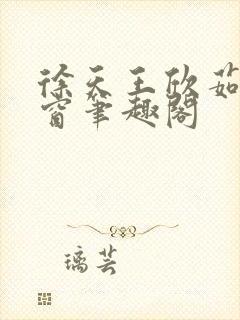 徐天王欣茹
窗笔趣阁
璃芸